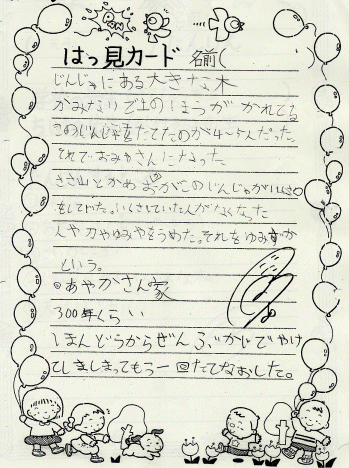 はっ見カード 名前(
じんじゃにある大きな木
かみなりで上のほうがかれてる
このじんじゃをたてたのが4〜5んだった。
それでおみやさんになった
ささ山とかめ おかがこのじんじゃが
をしてた。いくさしていた人がなくなった
人やカやゆみやをうめた。それをゆみずか
という。
◎あやかさん家
300年くらい
1まんどうからぜんぶかじでやけ
てしましまってもう一回たてなおした。